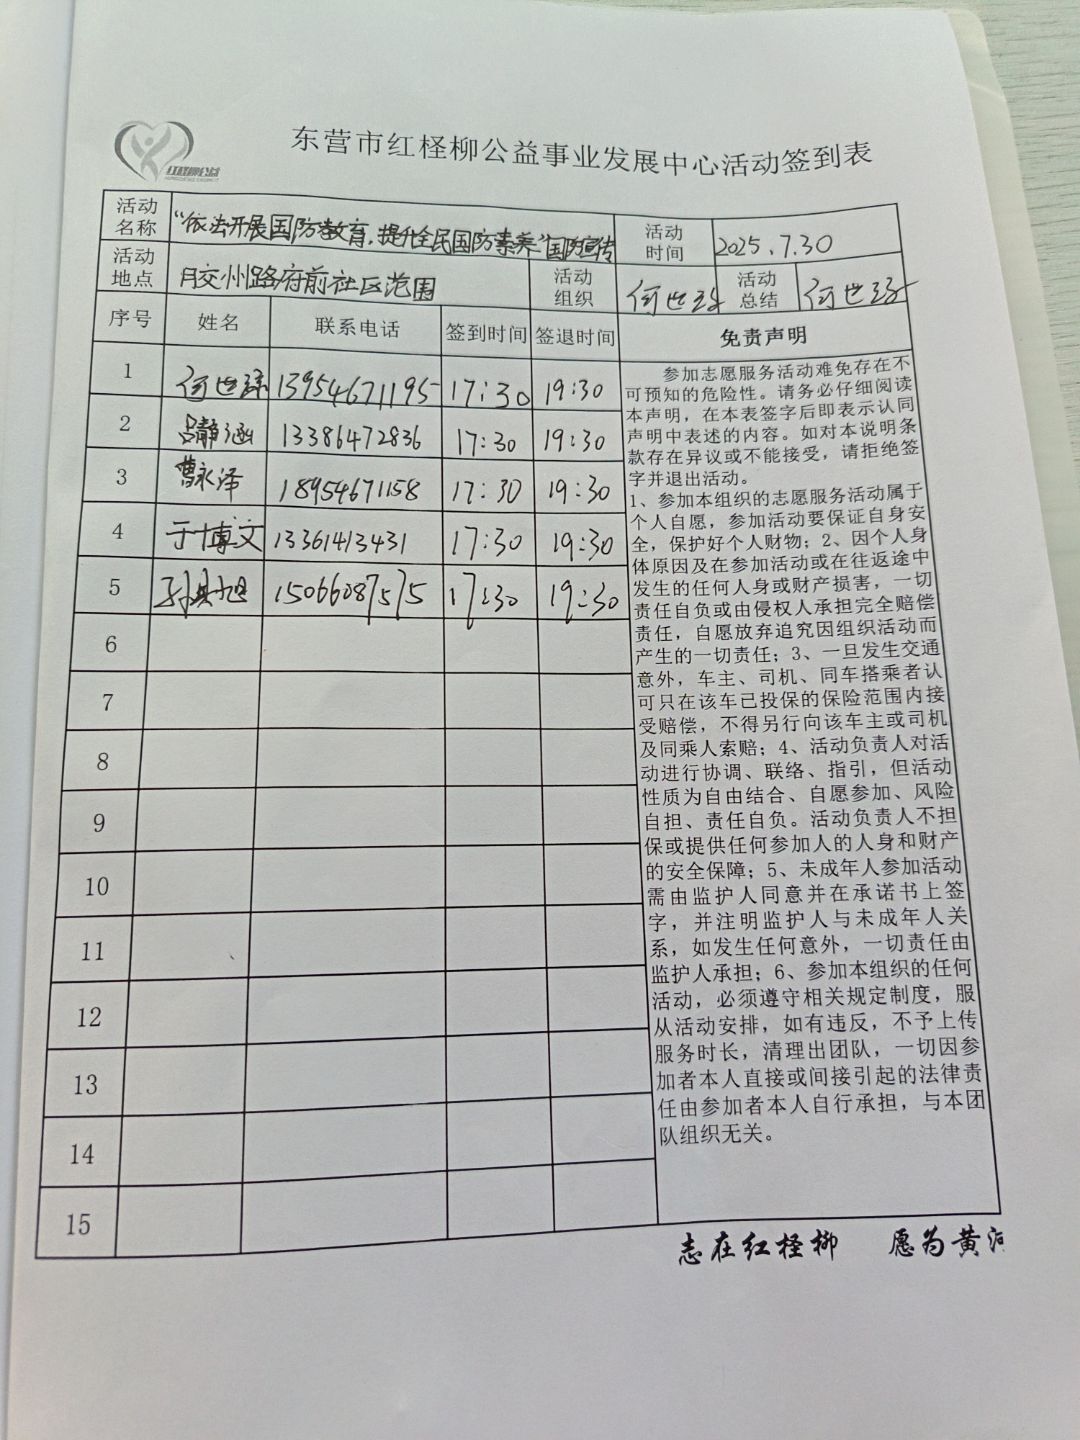 红柽柳公益
东营市红柽柳公益事业发展中心活动签到表
活动名称 “依法开展国防教育,提升全民国防素养”国防宣传 活动时间 2025.7.30
活动地点 胶州路府前社区范围 活动组织 何世 活动总结 何世
序号 姓名 联系电话 签到时间 签退时间 免责声明
1 何世 13954671195 17:30 19:30
2 吕静涵 13386472836 17:30 19:30
3 曹永泽 18954671158 17:30 19:30
4 于博文 13361413431 17:30 19:30
5 15066087575 17:30 19:30
6
7
8
9
10
11
12
13
14
15
参加志愿服务活动难免存在不
可预知的危险性。请务必仔细阅读
本声明，在本表签字后即表示认同
声明中表述的内容。如对本说明条
款存在异议或不能接受，请拒绝签
字并退出活动。
1、参加本组织的志愿服务活动属于
个人自愿，参加活动要保证自身安
全，保护好个人财物；2、因个人身
体原因及在参加活动或在往返途中
发生的任何人身或财产损害，一切
责任自负或由侵权人承担完全赔偿
责任，自愿放弃追究因组织活动而
产生的一切责任；3、一旦发生交通
意外，车主、司机、同车搭乘者认
可只在该车已投保的保险范围内接
受赔偿，不得另行向该车主或司机
及同乘人索赔；4、活动负责人对活
动进行协调、联络、指引，但活动
性质为自由结合、自愿参加、风险
自担、责任自负。活动负责人不担
保或提供任何参加人的人身和财产
的安全保障；5、未成年人参加活动
需由监护人同意并在承诺书上签
字，并注明监护人与未成年人关
系，如发生任何意外，一切责任由
监护人承担；6、参加本组织的任何
活动，必须遵守相关规定制度，服
从活动安排，如有违反，不予上传
服务时长，清理出团队，一切因参
加者本人直接或间接引起的法律责
任由参加者本人自行承担，与本团
队组织无关。
志在红柽柳 愿为黄河